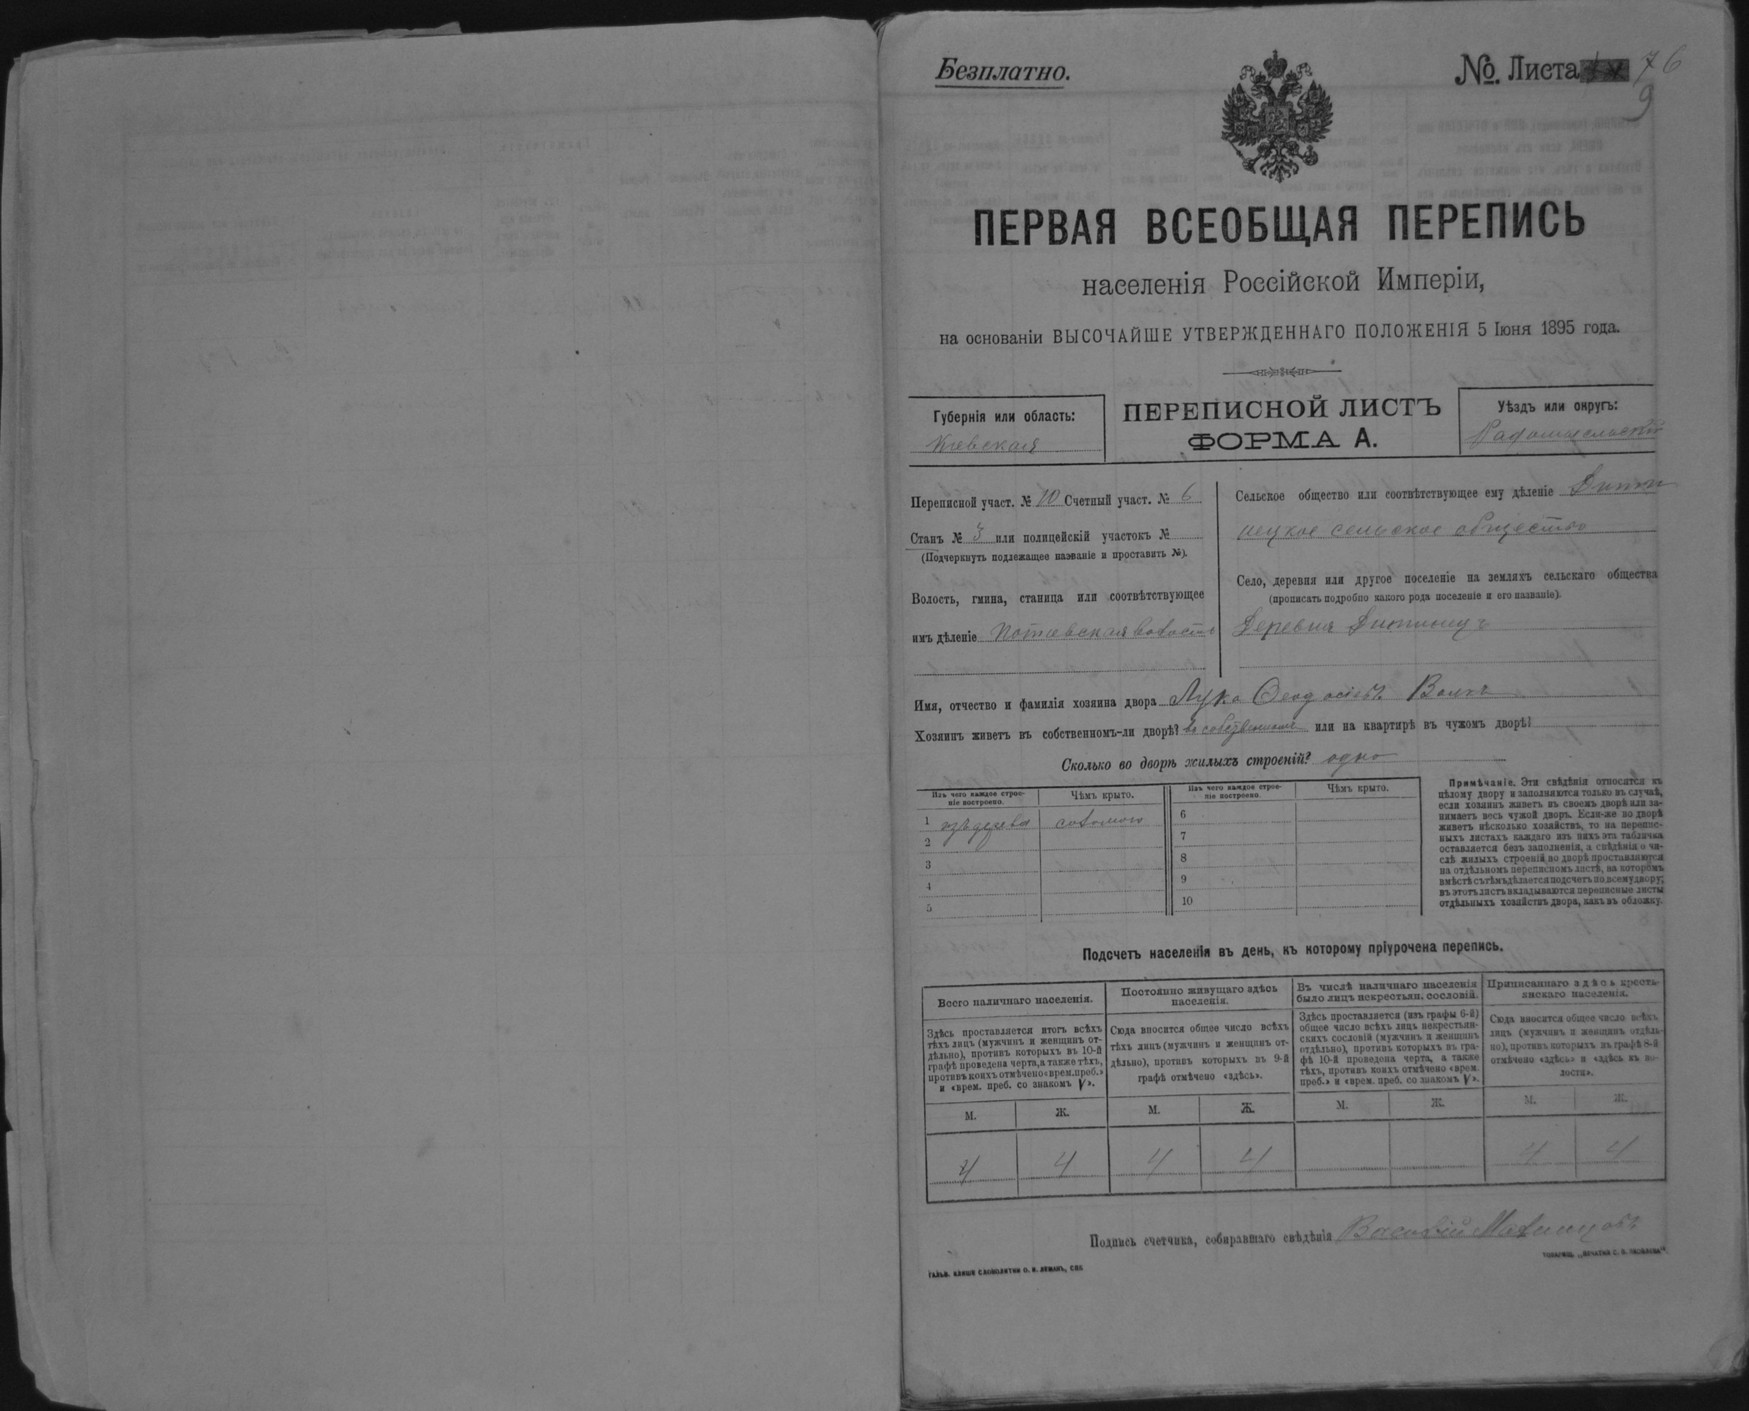 Безплатно.
№. Листа 76
9
ПЕРВАЯ ВСЕОБЩАЯ ПЕРЕПИСЬ
населенія Россійской Имперіи,
на основаніи ВЫСОЧАЙШЕ УТВЕРЖДЕННАГО ПОЛОЖЕНІЯ 5 Іюня 1895 года.
Губернія или область:
Кіевская
ПЕРЕПИСНОЙ ЛИСТЪ
ФОРМА А.
Уѣздъ или округъ:
Радомысльскій
Переписной участ. № 10 Счетный участ. № 6
Станъ № 3 или полицейскій участокъ №
(Подчеркнуть подлежащее названіе и проставить №).
Волость, гмина, станица или соотвѣтствующее
имъ дѣленіе волость
Сельское общество или соотвѣтствующее ему дѣленіе
сельское общество
Село, деревня или другое поселеніе на земляхъ сельскаго общества
(прописать подробно какого рода поселеніе и его названіе).
Деревня
Имя, отчество и фамилія хозяина двора Лука Феодосіевъ
Хозяинъ живетъ въ собственномъ-ли дворѣ? въ собственномъ или на квартирѣ въ чужомъ дворѣ?
Сколько во дворѣ жилыхъ строеній? одно
Изъ чего каждое строе-
ніе построено.
Чѣмъ крыто.
Изъ чего каждое строе-
ніе построено.
Чѣмъ крыто.
1 изъ дерева соломою
2
3
4
5
6
7
8
9
10
Примѣчаніе. Эти свѣдѣнія относятся къ
цѣлому двору и заполняются только въ случаѣ,
если хозяинъ живетъ въ своемъ дворѣ или за-
нимаетъ весь чужой дворъ. Если-же во дворѣ
живетъ нѣсколько хозяйствъ, то на перепис-
ныхъ листахъ каждаго изъ нихъ эта табличка
оставляется безъ заполненія, а свѣдѣнія о чи-
слѣ жилыхъ строеній во дворѣ проставляются
на отдѣльномъ переписномъ листѣ, на которомъ
вмѣстѣ съ тѣмъ дѣлается подсчетъ по всему двору;
въ этотъ листъ вкладываются переписные листы
отдѣльныхъ хозяйствъ двора, какъ въ обложку.
Подсчетъ населенія въ день, къ которому пріурочена перепись.
Всего наличнаго населенія.
Здѣсь проставляется итогъ всѣхъ
тѣхъ лицъ (мужчинъ и женщинъ от-
дѣльно), противъ которыхъ въ 10-й
графѣ проведена черта, а также тѣхъ,
противъ коихъ отмѣчено «врем. преб.»
и «врем. преб. со знакомъ V».
М. Ж.
4 4
Постоянно живущаго здѣсь
населенія.
Сюда вносится общее число всѣхъ
тѣхъ лицъ (мужчинъ и женщинъ от-
дѣльно), противъ которыхъ въ 9-й
графѣ отмѣчено «здѣсь».
М. Ж.
4 4
Въ числѣ наличнаго населенія
было лицъ некрестьян. сословій.
Здѣсь проставляется (изъ графы 6-й)
общее число всѣхъ лицъ некрестьян-
скихъ сословій (мужчинъ и женщинъ
отдѣльно), противъ которыхъ въ гра-
фѣ 10-й проведена черта, а также
тѣхъ, противъ коихъ отмѣчено «врем.
преб.» и «врем. преб. со знакомъ V».
М. Ж.
Приписаннаго здѣсь кресть-
янскаго населенія.
Сюда вносится общее число всѣхъ
лицъ (мужчинъ и женщинъ отдѣль-
но), противъ которыхъ въ графѣ 8-й
отмѣчено «здѣсь» и «здѣсь въ во-
лости».
М. Ж.
4 4
Подпись счетчика, собиравшаго свѣдѣнія Василій
ГАЛЬВ. КЛИШЕ СЛОВОЛИТНИ О. И. ЛЕМАНЪ, СПБ.
ТОВАРИЩ. „ПЕЧАТНЯ С. П. ЯКОВЛЕВА".